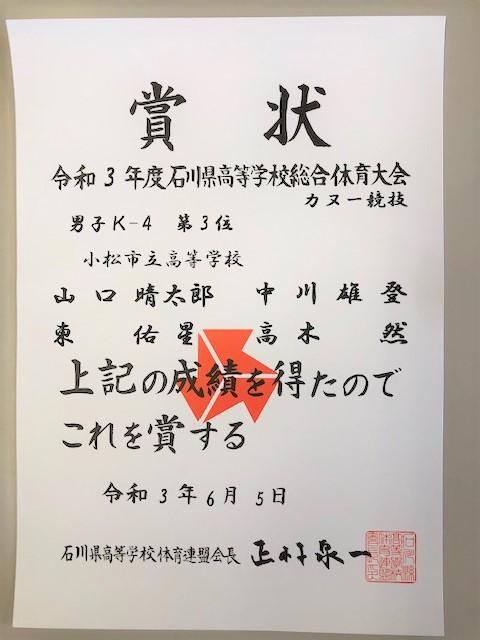 賞状
令和3年度石川県高等学校総合体育大会
カヌー競技
男子K-4 第3位
小松市立高等学校
山口晴太郎 中川雄登
東佑星 高木然
上記の成績を得たので
これを賞する
令和3年6月5日
石川県高等学校体育連盟会長 正村泉一